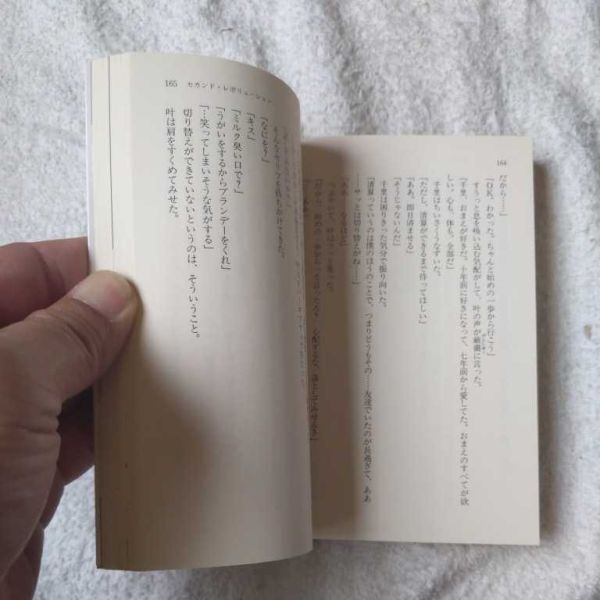 164
だから……」
「OK、わかった。ちゃんと始めの一歩から行こう」
すうっと息を吸い込む気配がして、叶の声が厳粛に言った。
「千里、おまえが好きだ。十年前に好きになって、七年前から愛してた。おまえのすべてが欲
しい。心も、体も、全部だ」
千里はちいさくうなずいた。
「ただし、清算ができるまで待ってほしい」
「ああ、即日済ませる」
「そうじゃないんだ」
千里は困りきった気分で振り向いた。
「清算っていうのは僕のほうのことで、つまりどうもその……友達でいたのが長過ぎて、ああ
……サッとは切り替えがね……」
「ああ
165 セカンド・レボリューション
「なにをう」
「キス」
「ミルク臭い口でぇ?」
「うがいをするからブランデーをくれ」
「…笑ってしまいそうな気がする」
切り替えができていないというのは、そういうこと。
叶は肩をすくめてみせた。